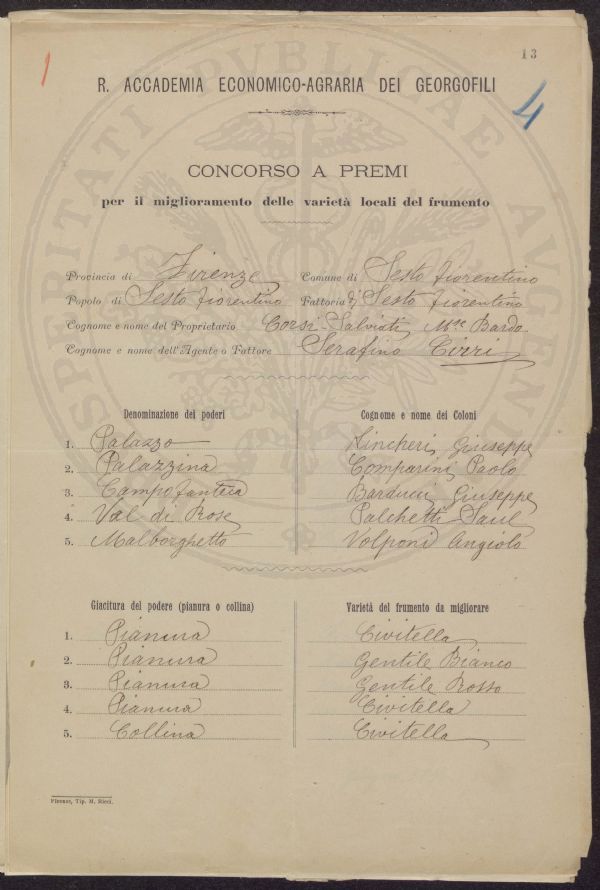 1
13
4
R. ACCADEMIA ECONOMICO-AGRARIA DEI GEORGOFILI
CONCORSO A PREMI
per il miglioramento delle varietà locali del frumento
Provincia di Firenze Comune di Sesto fiorentino
Popolo di Sesto fiorentino Fattoria di Sesto fiorentino
Cognome e nome del Proprietario Corsi Salviati Mse Bardo
Cognome e nome dell'Agente o Fattore Serafino Cirri
Denominazione dei poderi Cognome e nome dei Coloni
1. Palazzo Giuseppe
2. Palazzina Comparini Paolo
3. Barducci Giuseppe
4. Val di Rose Palchetti Saul
5. Malborghetto Volponi Angiolo
Giacitura del podere (pianura o collina) Varietà del frumento da migliorare
1. Pianura Civitella
2. Pianura Gentile Bianco
3. Pianura Gentile Rosso
4. Pianura Civitella
5. Collina Civitella
Firenze, Tip. M. Ricci.
PROSPERITATI PVBLICAE AVGENDAE